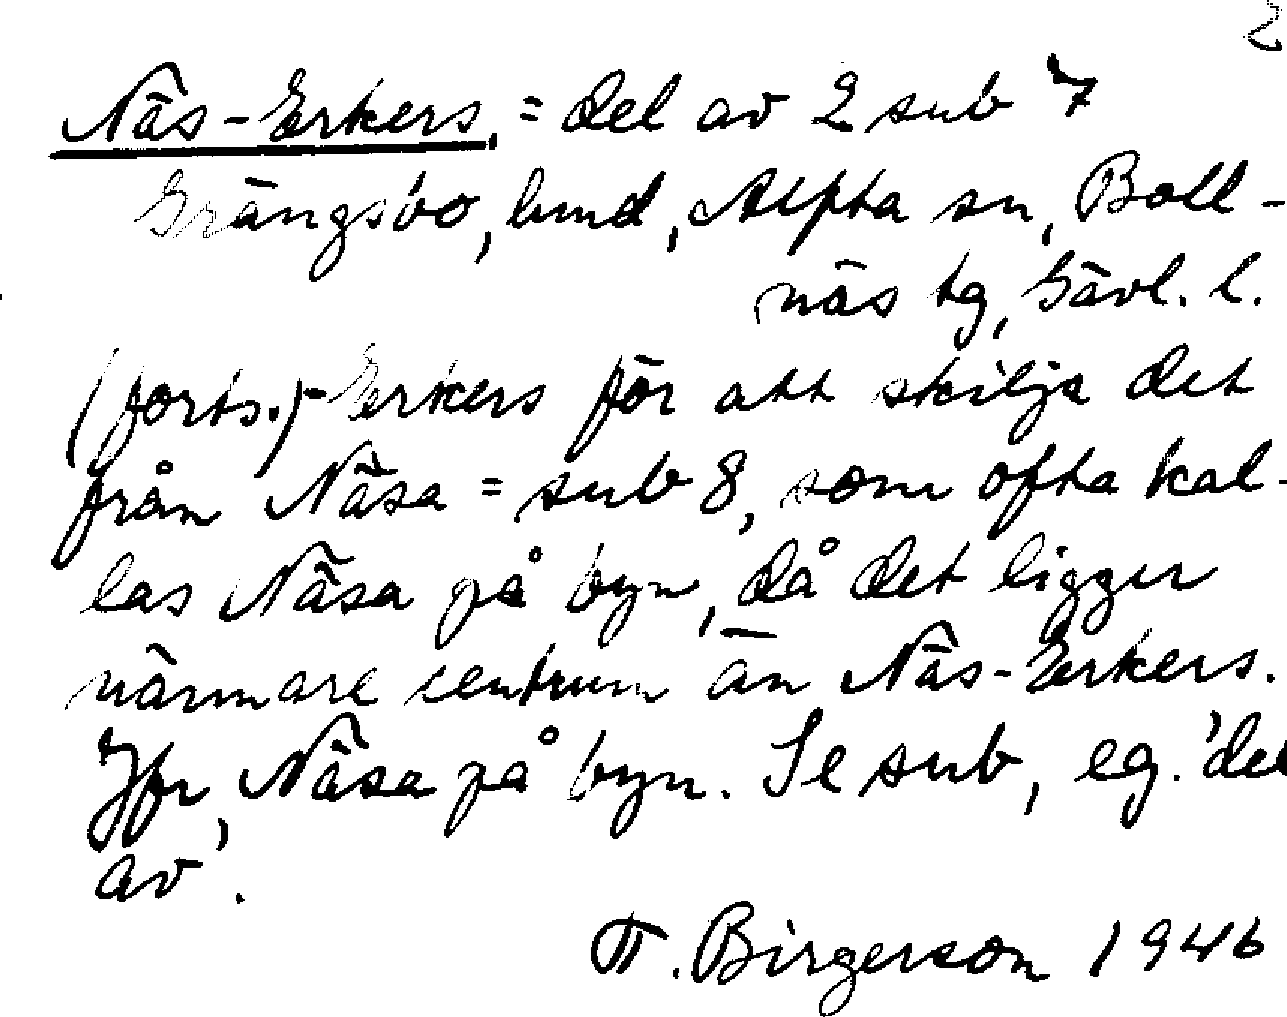 2
Näs-Erkers, = del av 2 sub 7
Grängsbo, hmd, Alfta sn, Boll-
näs tg, Gävl. l.
(forts.)-Erkers för att skilja det
från Näsa = sub 8, som ofta kal-
las Näsa på byn, då det ligger
närmare centrum än Näs-Erkers.
Jfr, Näsa på byn. Se sub, eg. 'del
av'.
T. Birgerson 1946